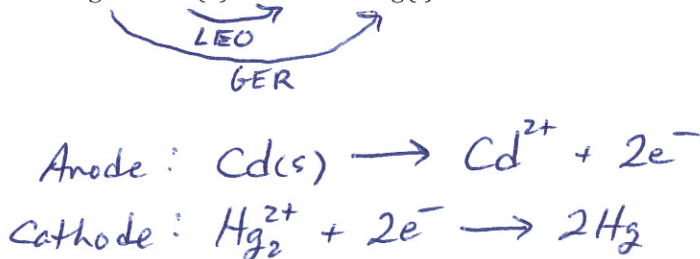 LEO
GER
Anode : Cd(s) → Cd²⁺ + 2e⁻
Cathode : Hg₂²⁺ + 2e⁻ → 2Hg